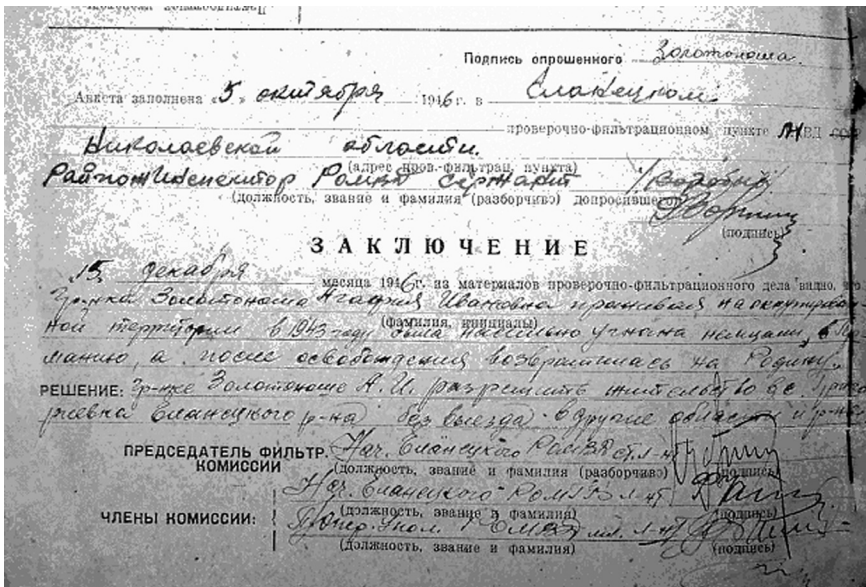 Подпись опрошенного Золотоноша.
Анкета заполнена „5„ октября 1946 г. в Еланецком
проверочно-фильтрационном пункте МВД СССР
Николаевской области.
(адрес пров.-фильтрац. пункта)
сержант
(должность, звание и фамилия (разборчиво) допросившего)
(подпись)
ЗАКЛЮЧЕНИЕ
15 декабря месяца 1946 г. из материалов проверочно-фильтрационного дела видно, что
гр-нка Золотоноша Агафия Ивановна проживая на оккупирован
(фамилия, инициалы)
ной территории в 1943 году была насильно угнана немцами, в Гер
манию, а после освобождения возвратилась на Родину.
РЕШЕНИЕ: гр-нке Золотоноше А. И. разрешить жительство в с.
Еланецкого р-на без выезда в другие области и р-ны
ПРЕДСЕДАТЕЛЬ ФИЛЬТР. Нач. Еланецкого
КОМИССИИ
(должность, звание и фамилия (разборчиво) (подпись)
Нач. Еланецкого
ЧЛЕНЫ КОМИССИИ:
(должность, звание и фамилия) (подпись)
(должность, звание и фамилия) (подпись)